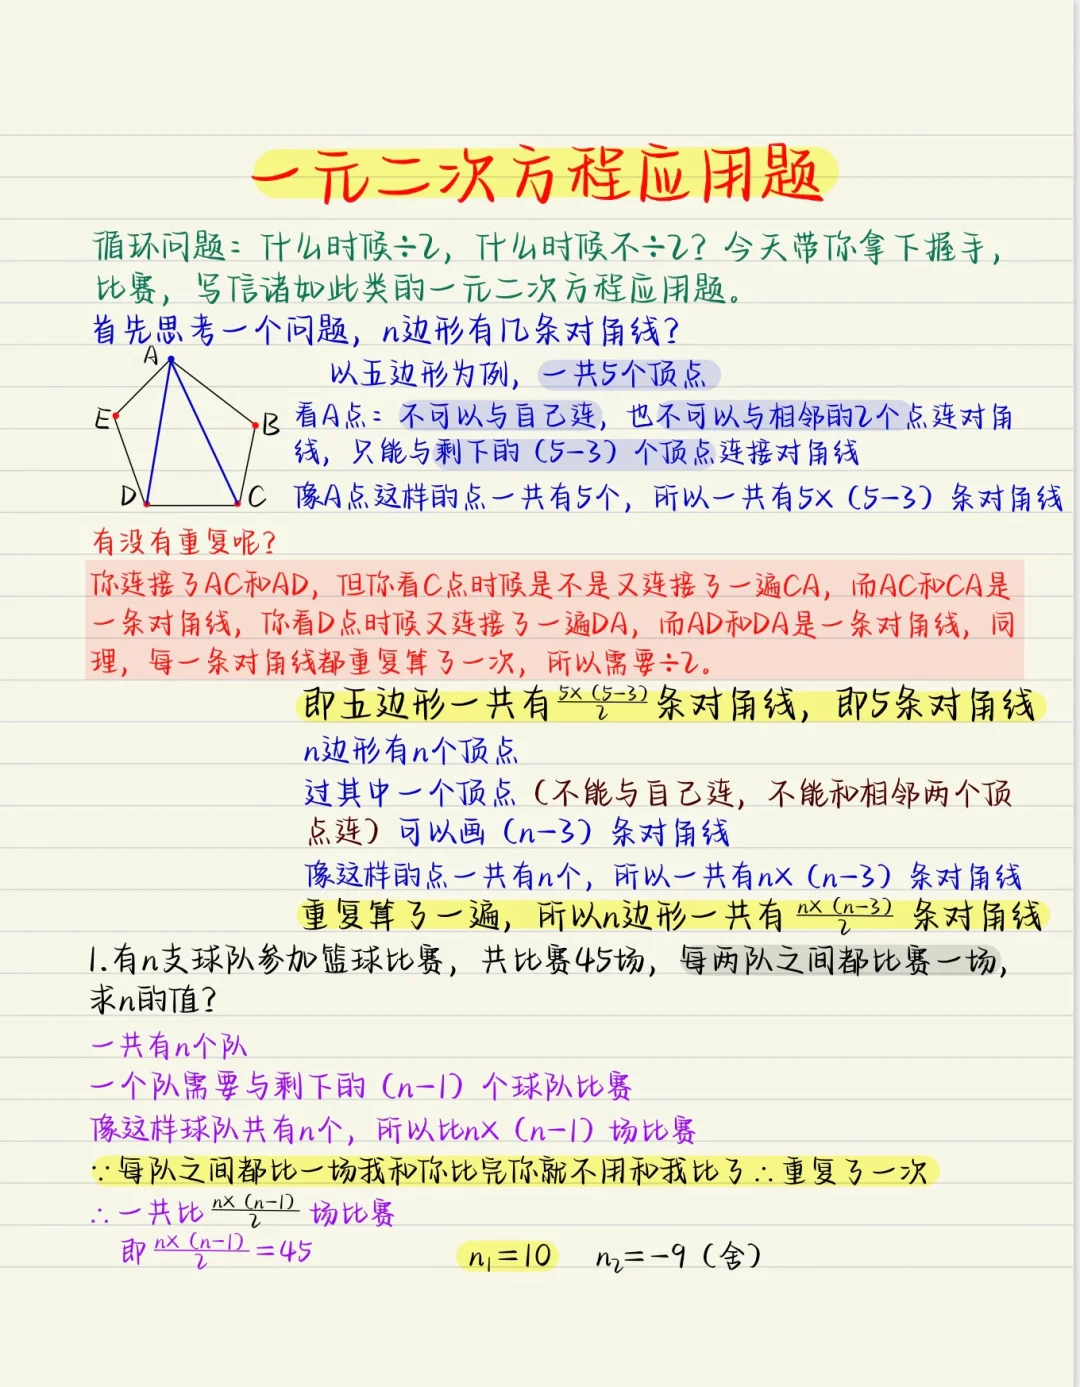 一元二次方程应用题
循环问题：什么时候÷2，什么时候不÷2？今天带你拿下握手，
比赛，写信诸如此类的一元二次方程应用题。
首先思考一个问题，n边形有几条对角线？
A
E
B
D
C
以五边形为例，一共5个顶点
看A点：不可以与自己连，也不可以与相邻的2个点连对角
线，只能与剩下的（5-3）个顶点连接对角线
像A点这样的点一共有5个，所以一共有5×（5-3）条对角线
有没有重复呢？
你连接了AC和AD，但你看C点时候是不是又连接了一遍CA，而AC和CA是
一条对角线，你看D点时候又连接了一遍DA，而AD和DA是一条对角线，同
理，每一条对角线都重复算了一次，所以需要÷2。
即五边形一共有5×（5-3）/2条对角线，即5条对角线
n边形有n个顶点
过其中一个顶点（不能与自己连，不能和相邻两个顶
点连）可以画（n-3）条对角线
像这样的点一共有n个，所以一共有n×（n-3）条对角线
重复算了一遍，所以n边形一共有n×（n-3）/2条对角线
1.有n支球队参加篮球比赛，共比赛45场，每两队之间都比赛一场，
求n的值？
一共有n个队
一个队需要与剩下的（n-1）个球队比赛
像这样球队共有n个，所以比n×（n-1）场比赛
∵每队之间都比一场我和你比完你就不用和我比了∴重复了一次
∴一共比n×（n-1）/2场比赛
即n×（n-1）/2=45 n₁=10 n₂=-9（舍）